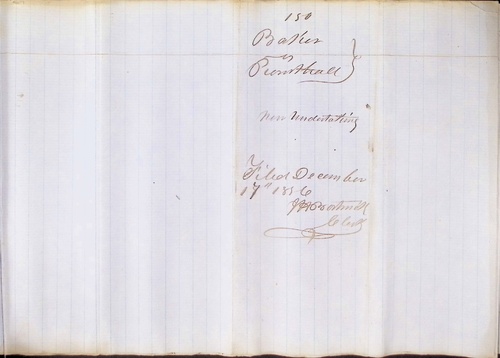 150
Baker
vs
New Undertaking
Filed December
17th 1856
Clerk